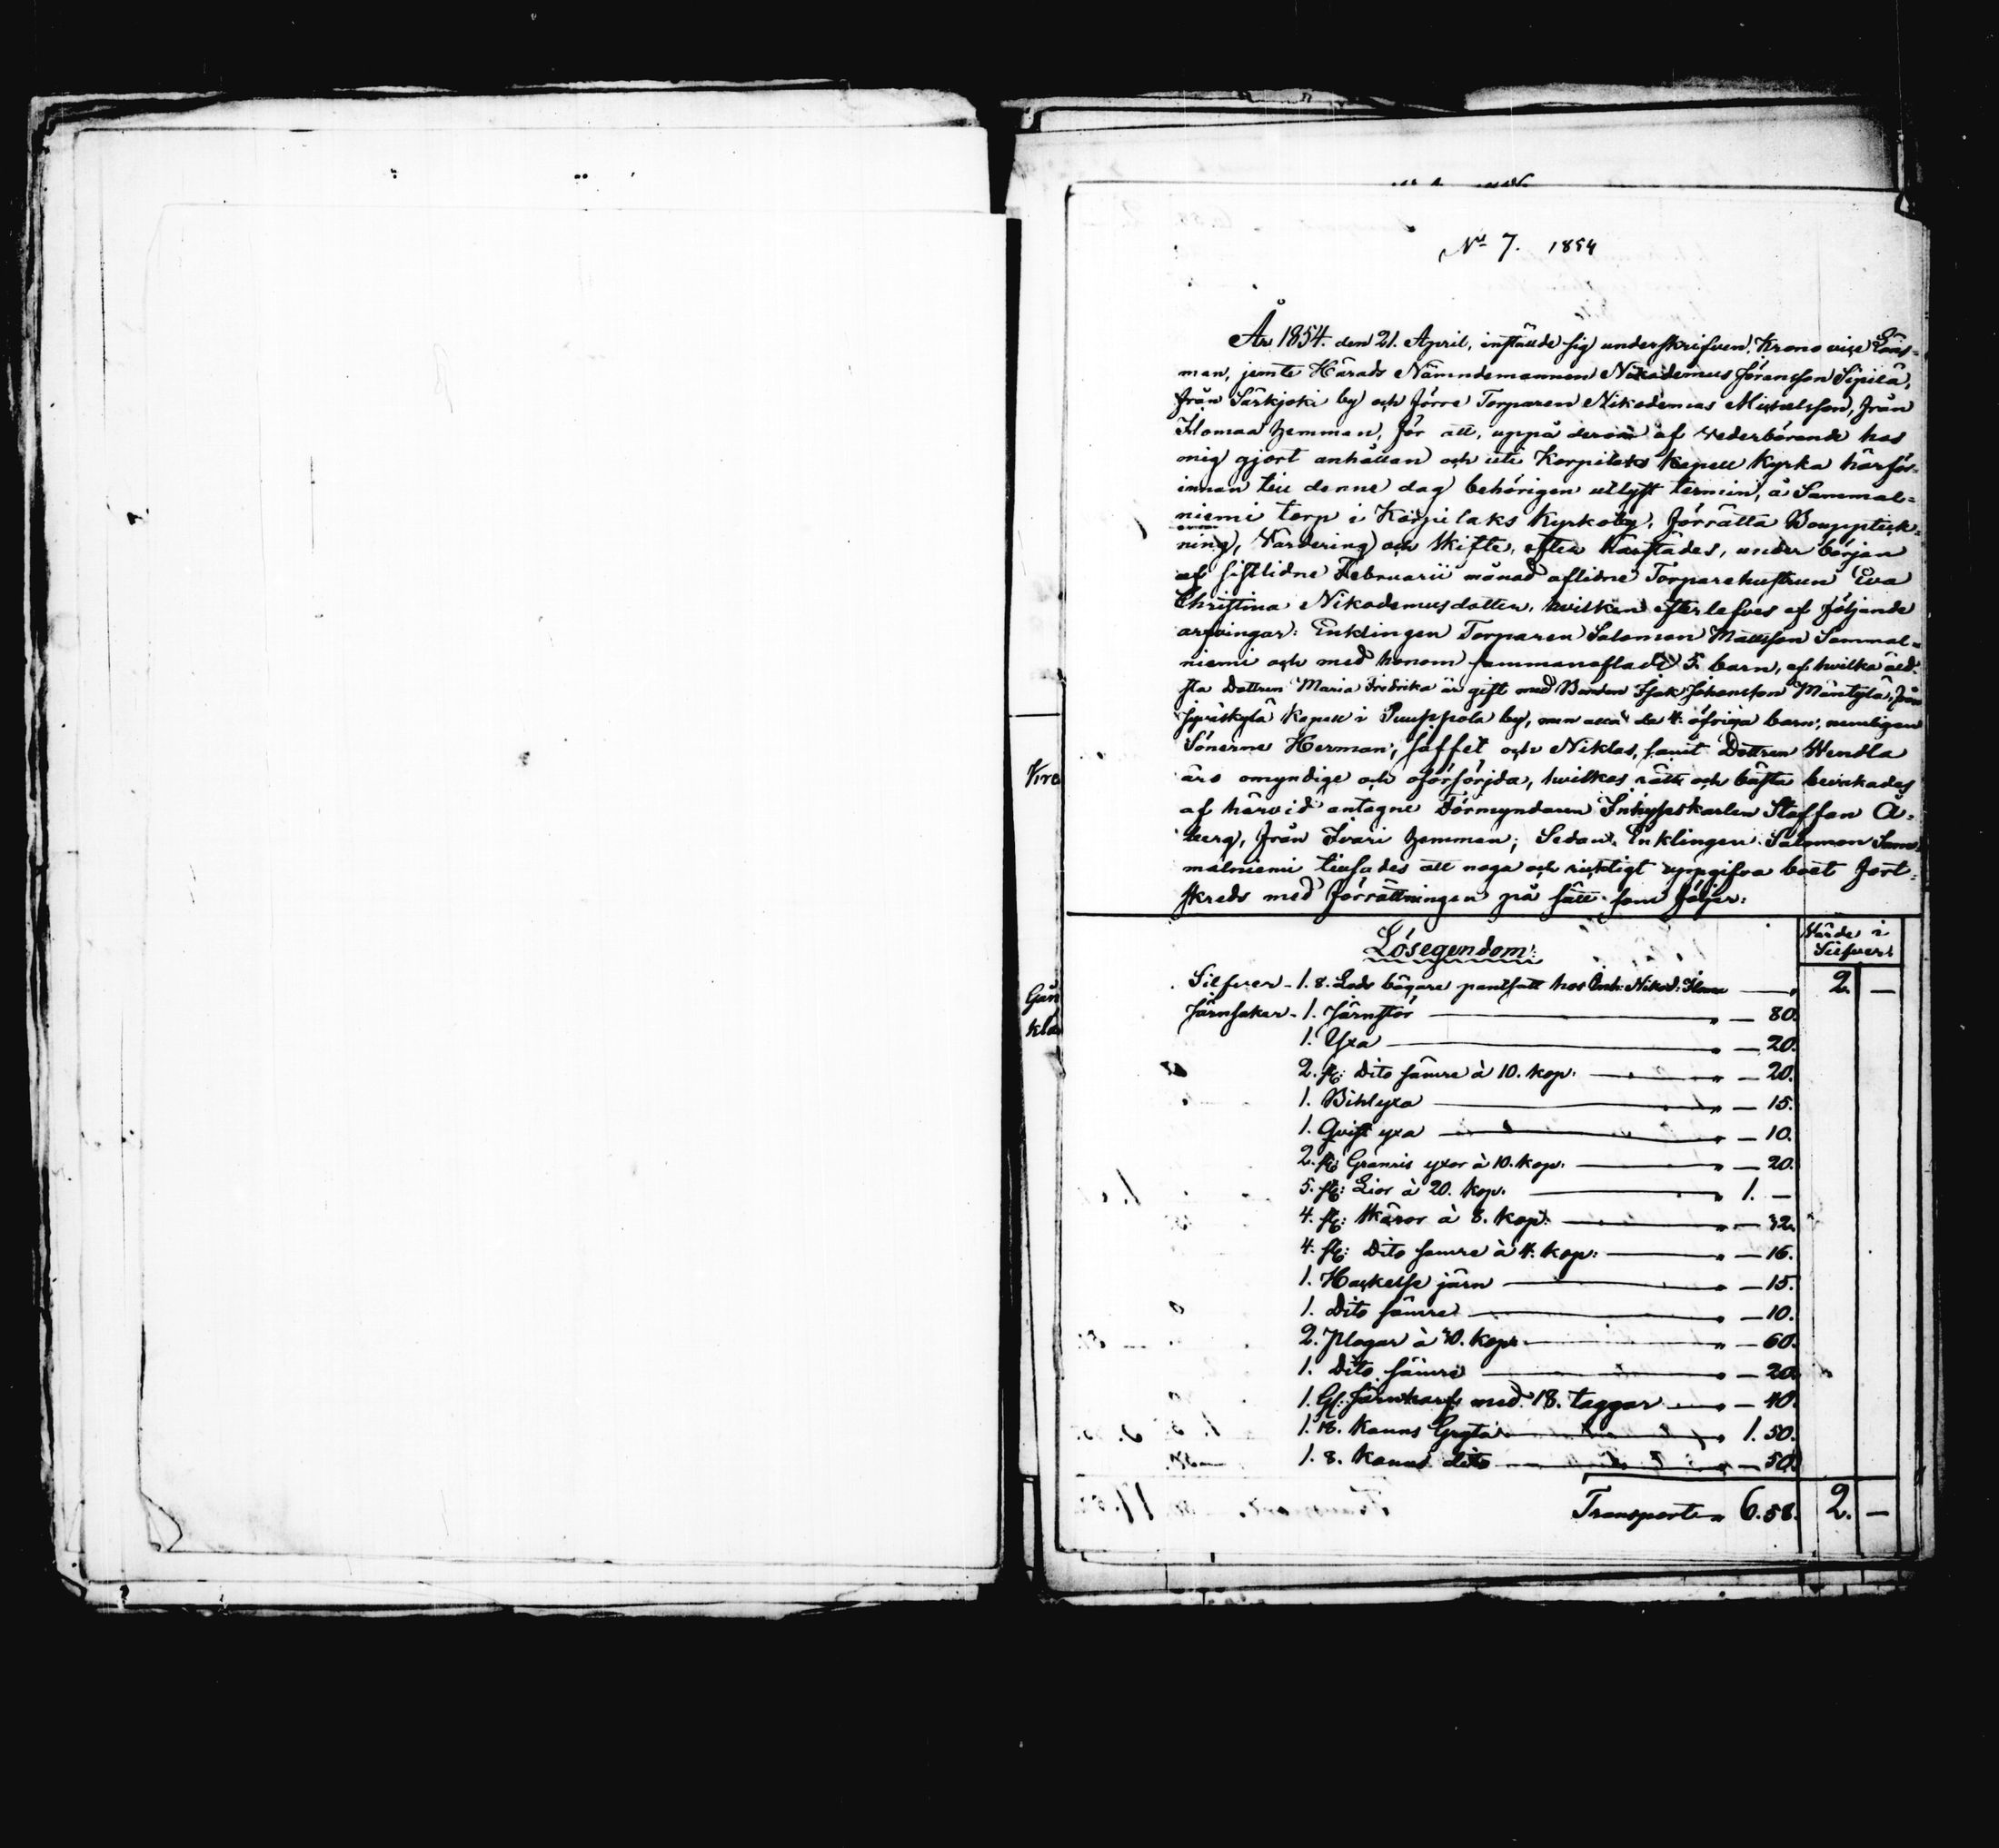 No 7. 1854
År 1854. den 21. April, instälde sig underskrifven, Krono vice Läns-
man, jemte Härads Nämndemannen Nikodemus Göransson Sipilä,
från Särkjoki by och förre Torparen Nikodemus Michelsson, från
Ilomaa hemman, för att, uppå derom af Vederbörande hos
mig gjort anhållan och uti Korpilaks Kapell Kyrka härför-
innan till denne dag behörigen utlyst termin, å Sammal-
niemi torp i Korpilaks Kyrkoby, förrätta Bouppteck-
ning, Värdering och Skifte, efter härstädes, under början
af sistlidne Februarii månad aflidne Torparehustrun Eva
Christina Nikodemusdotter, hvilken efterlefves af följande
arfvingar: Enklingen Torparen Salomon Mattsson Sammal-
niemi och med honom sammanaflade 5. barn, af hvilka äld-
sta Dottren Maria Fredrika är gift med Bonden Isak Johansson Mäntylä, från
Jyväskylä Kapell i Puuppola by, men alla de 4. öfriga barn, nemligen
Sönerne Herman, Jaffet och Niklas, samt Dottren Hendla
äro omyndige och oförsörjda, hvilkas rätt och bästa bevakades
af härvid antagne Förmyndaren Inhyseskarlen Staffan Å-
berg, från Ivari hemman; Sedan Enklingen Salomon Sam-
malniemi tillsades att noga och riktigt uppgifva boet fort-
skreds med förrättningen på sätt som följer:
Lösegendom:
Värde i
Silfver
Silfver - 1. 8. Lods bägare pantsatt hos Nikod: 2. —
Järnsaker - 1. Järnstör " — 80.
1. Yxa " — 20.
2. st: Dito sämre à 10. kop. " — 20.
1. Bihlyxa " — 15.
1. Qvist yxa " — 10.
2. st: Granris yxor à 10. kop. " — 20.
5. st: Lior à 20. kop. " 1. —
4. st: Skäror à 8. kop. " — 32.
4. st: Dito sämre à 4. kop: " — 16.
1. Hackelse järn " — 15.
1. Dito sämre " — 10.
2. Plogar à 30. kop. " — 60.
1. Dito sämre " — 20.
1. Gl. Järnharf med 18. taggar " — 40.
1. 18. Kanns Gryta " 1. 50.
1. 8. Kanns dito " — 50.
Transport " 6. 58. 2. —
Kro
Gån
klä